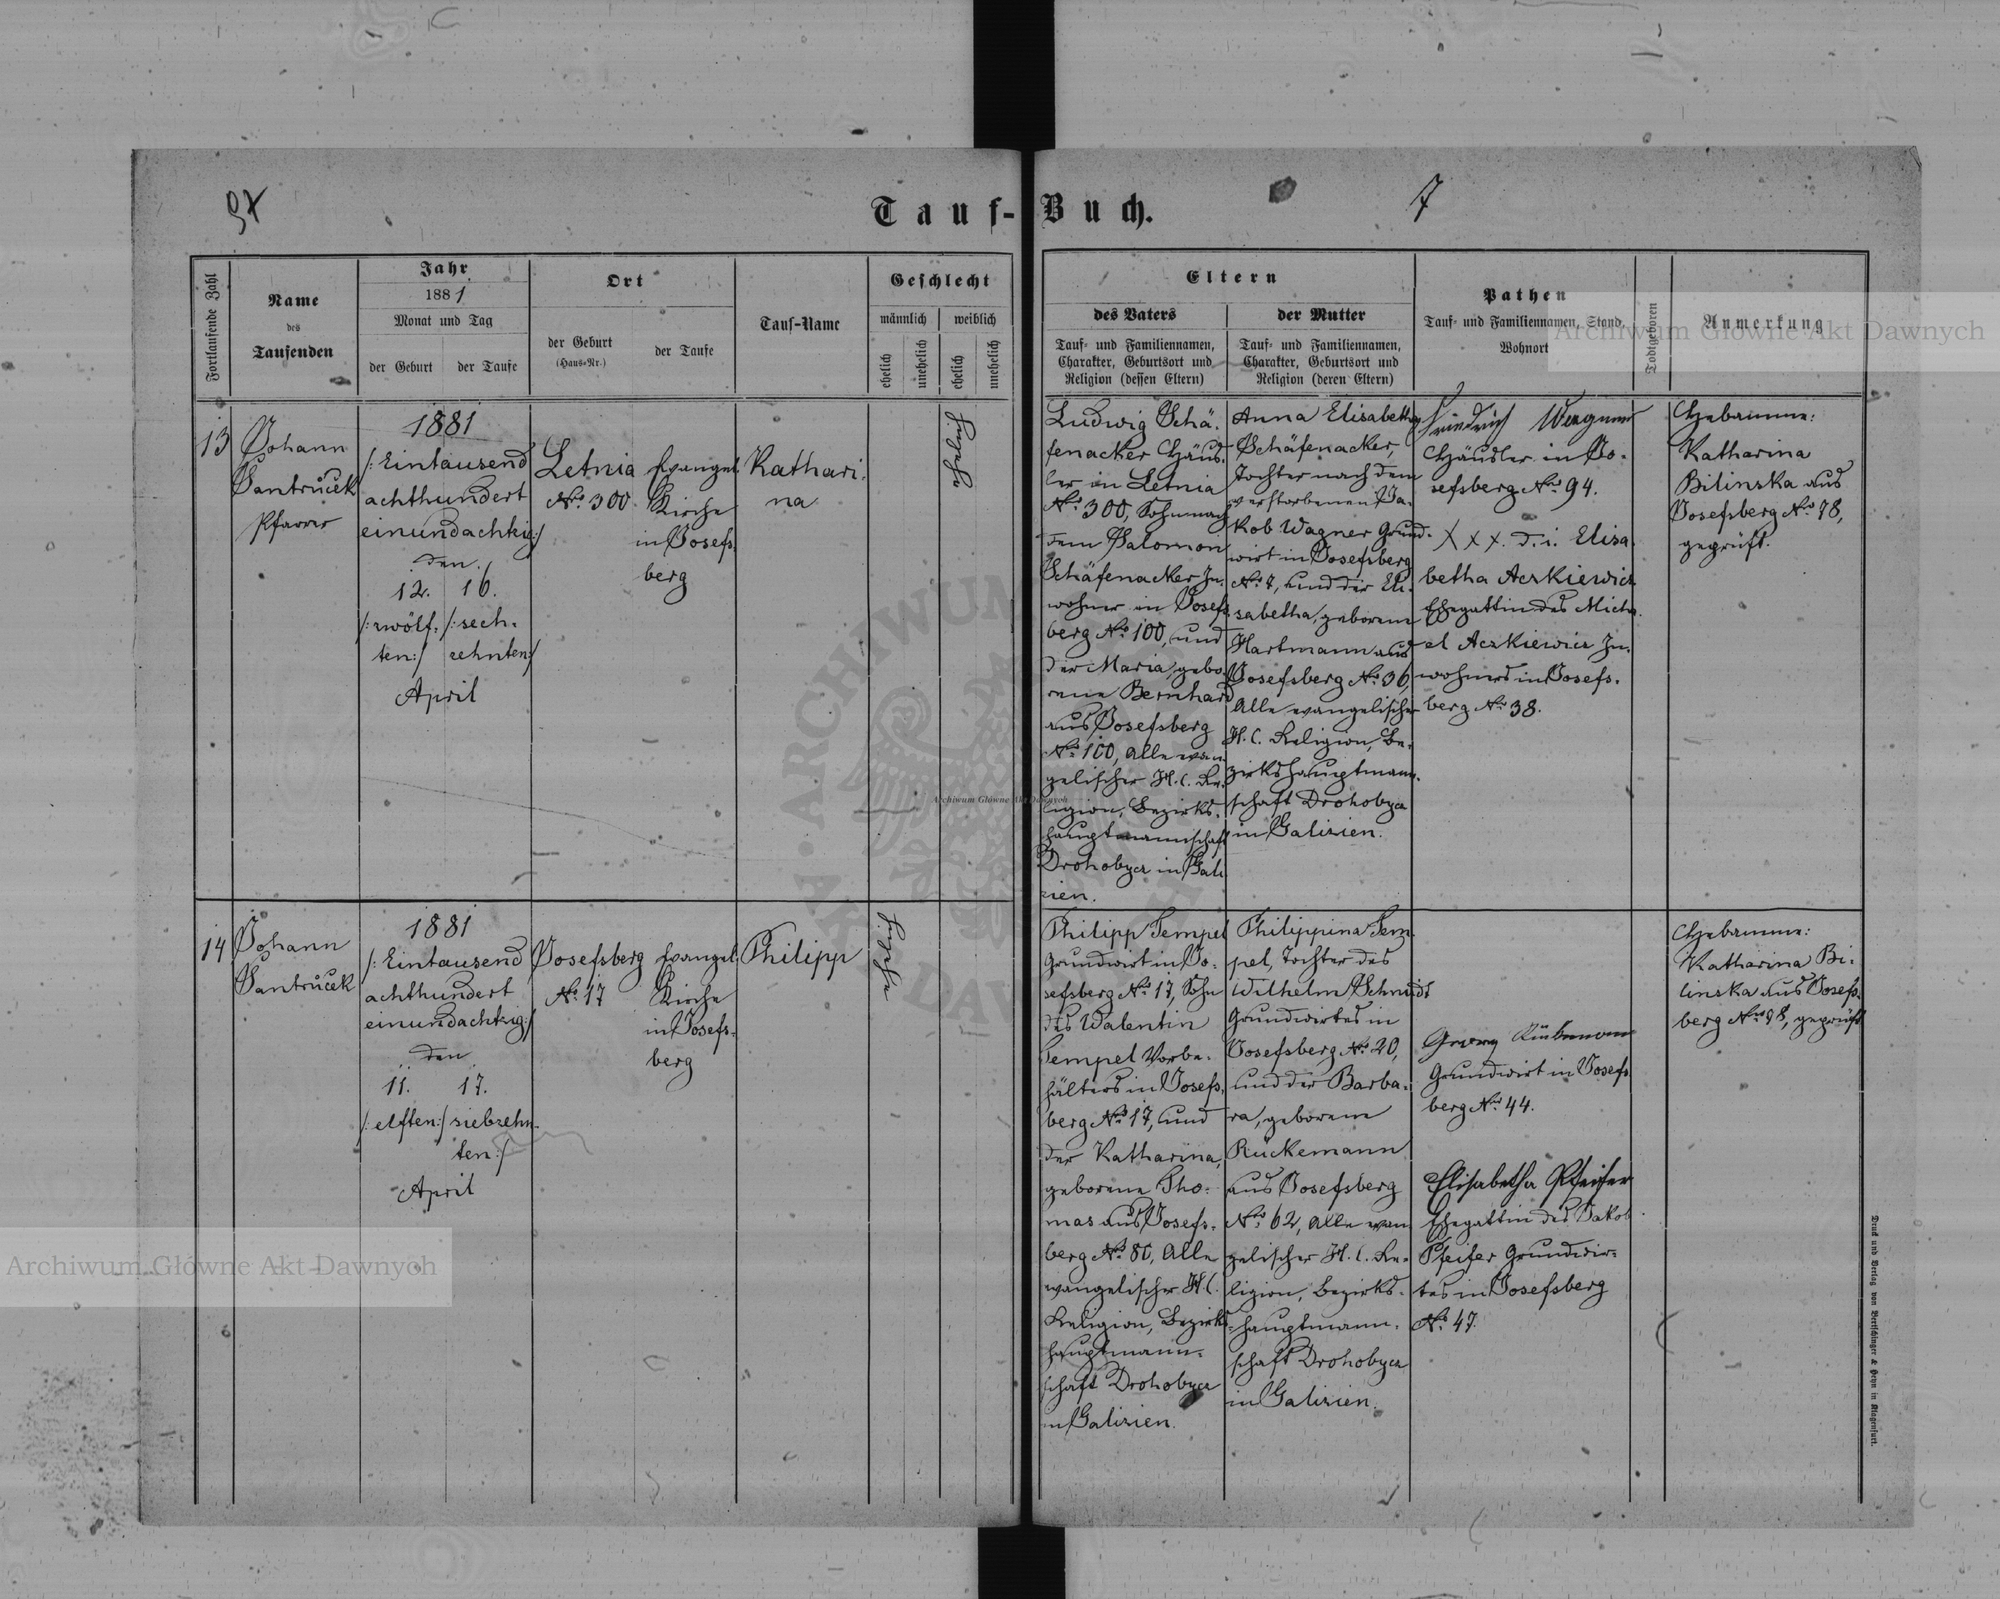 Tauf-Buch.
7
Fortlaufende Zahl
Name
des
Taufenden
Jahr
1881
Monat und Tag
der Geburt
der Taufe
Ort
der Geburt
(Haus-Nr.)
der Taufe
Tauf-Name
Geschlecht
männlich
weiblich
ehelich
unehelich
ehelich
unehelich
Eltern
des Vaters
Tauf- und Familiennamen,
Charakter, Geburtsort und
Religion (dessen Eltern)
der Mutter
Tauf- und Familiennamen,
Charakter, Geburtsort und
Religion (deren Eltern)
Pathen
Tauf- und Familiennamen, Stand,
Wohnort
Todtgeboren
Anmerkung
13
Johann
Jantrůček
Pfarrer
1881
/:Eintausend
achthundert
einundachtzig:/
den
12. 16.
/:zwölf- /:sech-
ten:/ zehnten:/
April
Letnia
No. 300
Evangel.
Kirche
in Josefs-
berg
Kathari-
na
ehelich
Ludwig Schä-
fenacker Häus-
ler in Letnia
No. 300, Sohn nach
dem Salomon
Schäfenacker In-
wohner in Josefs-
berg No. 100, und
der Maria, gebo-
rene Bernhard
aus Josefsberg
No. 100, alle evan-
gelischer H.C. Re-
ligion, Bezirks-
hauptmannschaft
Drohobycz in Gali-
zien.
Anna Elisabetha
Schäfenacker,
Tochter nach dem
verstorbenen Ja-
kob Wagner Grund-
wirt in Josefsberg
No. 7, und der Eli-
sabetha, geborene
Hartmann aus
Josefsberg No. 36,
Alle evangelischer
H.C. Religion, Be-
zirkshauptmann-
schaft Drohobycz
in Galizien.
Friedrich Wagner
Häusler in Jo-
sefsberg No. 94.
XXX. d.i. Elisa-
betha Aczkiewicz
Ehegattin des Micha-
el Aczkiewicz In-
wohners in Josefs-
berg No. 38.
Hebamme:
Katharina
Bilinska aus
Josefsberg No. 78,
geprüft.
14
Johann
Jantrůček
1881
/:Eintausend
achthundert
einundachtzig:/
den
11. 17.
/:elften:/ siebzehn-
ten:/
April
Josefsberg
No. 17
Evangel.
Kirche
in Josefs-
berg
Philipp
ehelich
Philipp Tempel
Grundwirt in Jo-
sefsberg No. 17, Sohn
des Walentin
Tempel Vorbe-
hälters in Josefs-
berg No. 17, und
der Katharina,
geborene Tho-
mas aus Josefs-
berg No. 80, Alle
evangelischer H.C.
Religion, Bezirks-
hauptmann-
schaft Drohobycz
in Galizien.
Philippina Tem-
pel, Tochter des
Wilhelm Schmidt
Grundwirtes in
Josefsberg No. 20,
und der Barba-
ra, geborene
Rückemann
aus Josefsberg
No. 62, Alle evan-
gelischer H.C. Re-
ligion, Bezirks-
hauptmann-
schaft Drohobycz
in Galizien.
Georg
Grundwirt in Josefs-
berg No. 44.
Elisabetha Pfeifer
Ehegattin des Jakob
Pfeifer Grundwir-
tes in Josefsberg
No. 47.
Hebamme:
Katharina Bi-
linska aus Josefs-
berg No. 78, geprüft
Druck und Verlag von Bertschinger & Heyn in Klagenfurt.
Archiwum Główne Akt Dawnych
Archiwum Główne Akt Dawnych
Archiwum Główne Akt Dawnych